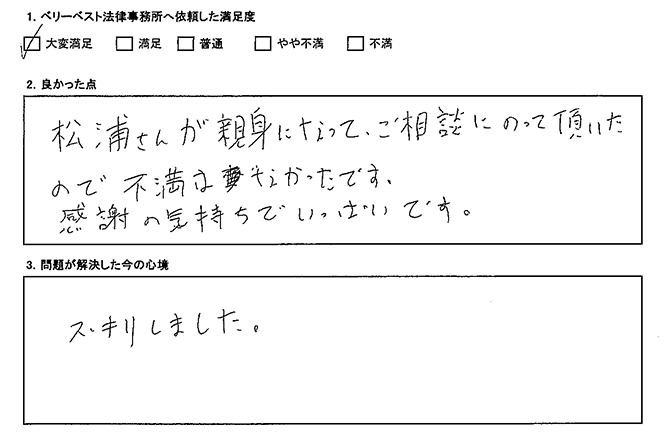 1. ベリーベスト法律事務所へ依頼した満足度
大変満足 満足 普通 やや不満 不満
2. 良かった点
松浦さんが親身になって、ご相談にのって頂いた
ので不満は なかったです、
感謝の気持ちでいっぱいです。
3. 問題が解決した今の心境
スッキリしました。